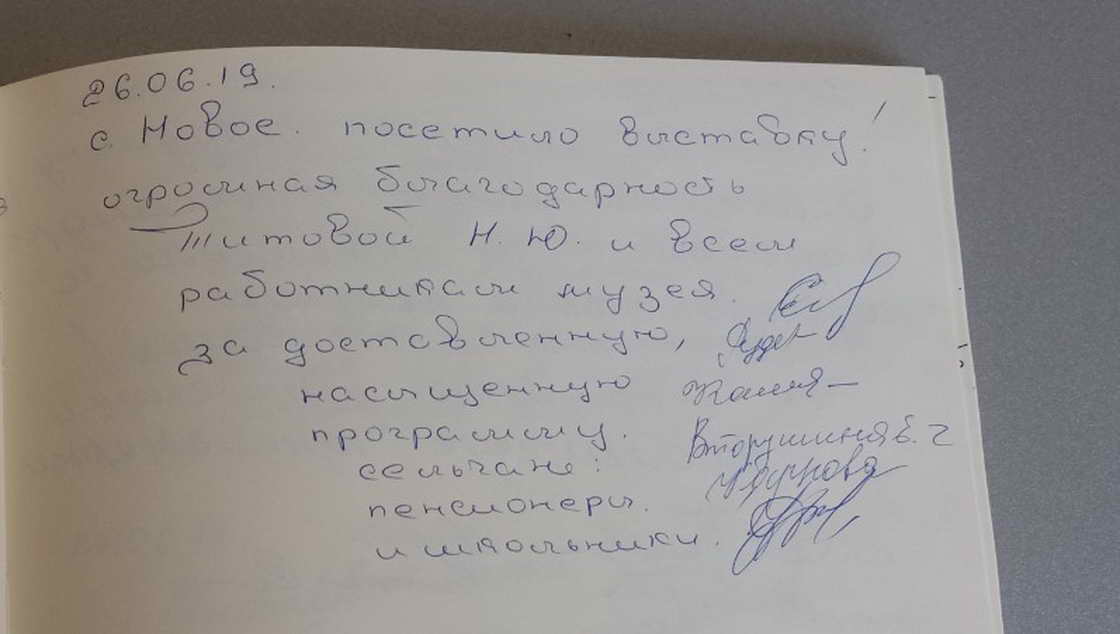 26.06.19.
с. Новое. посетило выставку!
огромная благодарность
Титовой Н.Ю. и всем
работникам музея.
за доставленную,
насыщенную
программу.
сельчане:
пенсионеры.
и школьники.